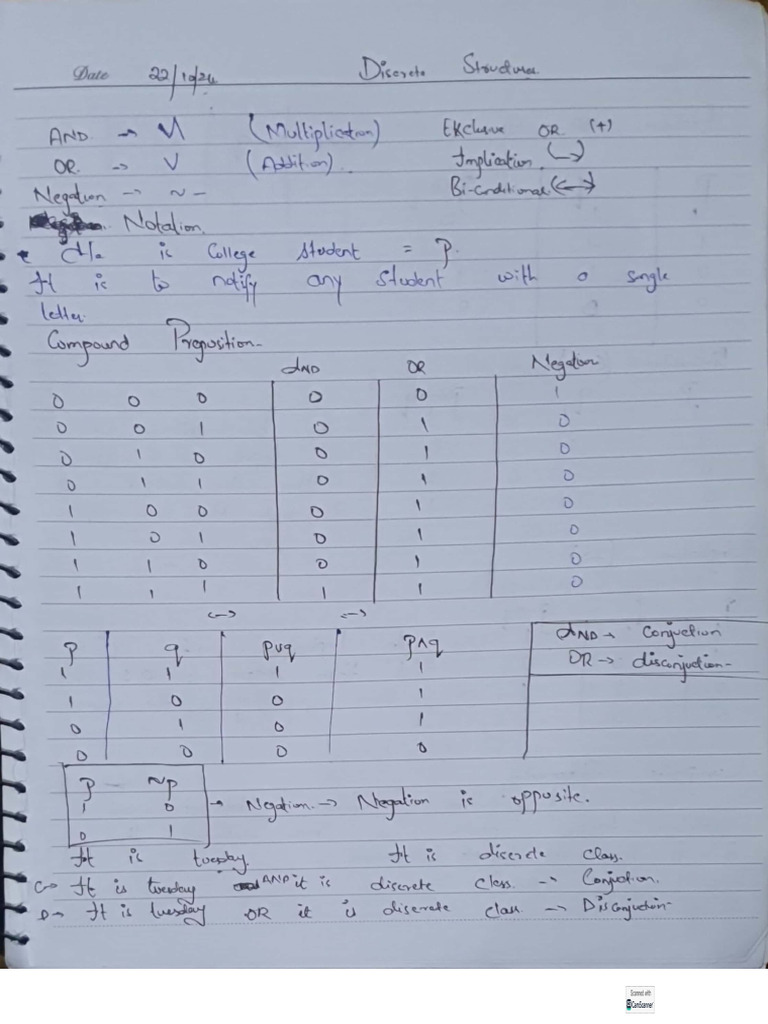 Date 22/10/24 Discrete Structures
AND → Λ (Multiplication) Exclusive OR (+)
OR → V (Addition). Implication (→)
Negation → ~ − Bi-conditional (↔)
Notation.
is College Student = P.
It is to notify any Student with a single
letter.
Compound Preposition-
AND OR Negation
0 0 0 0 0 1
0 0 1 0 1 0
0 1 0 0 1 0
0 1 1 0 1 0
1 0 0 0 1 0
1 0 1 0 1 0
1 1 0 0 1 0
1 1 1 1 1 0
↔ ↔
P q pvq p∧q
1 1 1 1
1 0 0 1
0 1 0 1
0 0 0 0
AND → Conjuction
OR → disconjuction-
P ~p
1 0
0 1
→ Negation. → Negation is opposite.
It is tuesday. It is discrete class.
C→ It is tuesday AND it is discrete class. → Conjuction.
D→ It is tuesday OR it is discrete class → Disconjuction-
Scanned with
CamScanner